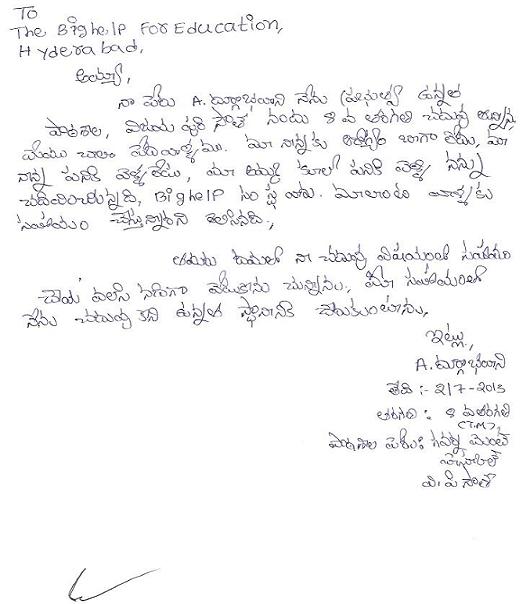 To
The BigHelp For Education,
Hyderabad,
అయ్యా,
నా పేరు A. దుర్గాభవాని నేను ప్రభుత్వ ఉన్నత
పాఠశాల, విజయ పురి సౌత్ నందు 8 వ తరగతి చదువు చున్నాను,
మేము చాలా పేదవాళ్ళము. మా నాన్నకు ఆరోగ్యం బాగా లేదు, మా
నాన్న పనికి వెళ్ళలేడు, మా అమ్మ కూలి పనికి వెళ్ళి నన్ను
చదివించుచున్నది, BigHelp సంస్థ వారు. మాలాంటి వాళ్ళకు
సహాయం చేస్తున్నారని తెలిసినది.,
నా చదువు విషయంలో సహాయం
చేయ వలసి నదిగా వేడుకొను చున్నాను., మీ సహాయంతో
నేను చదువు కొని ఉన్నత స్థానానికి చేరుకుంటాను,
ఇట్లు,
A. దుర్గాభవాని
తేది :- 2/7-2013
తరగతి : 8 వ తరగతి
(T.M),
పాఠశాల పేరు: గవర్న మెంట్
హైస్కూల్
వి. పి సౌత్